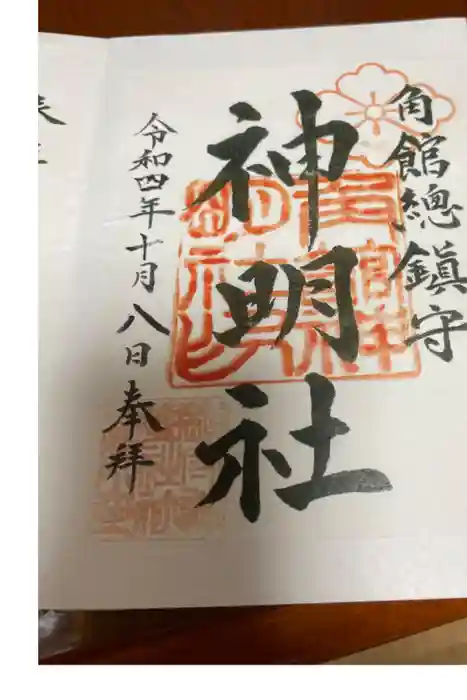 角館總鎮守
神明社
令和四年十月八日奉拜